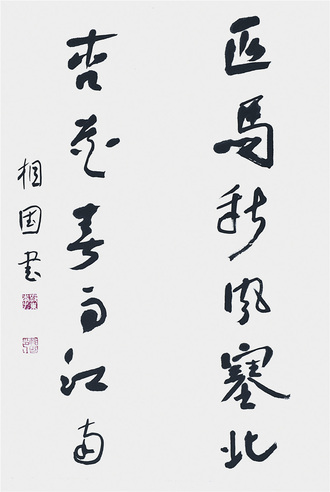 匹馬秋風塞北
杏花春雨江南
相国书